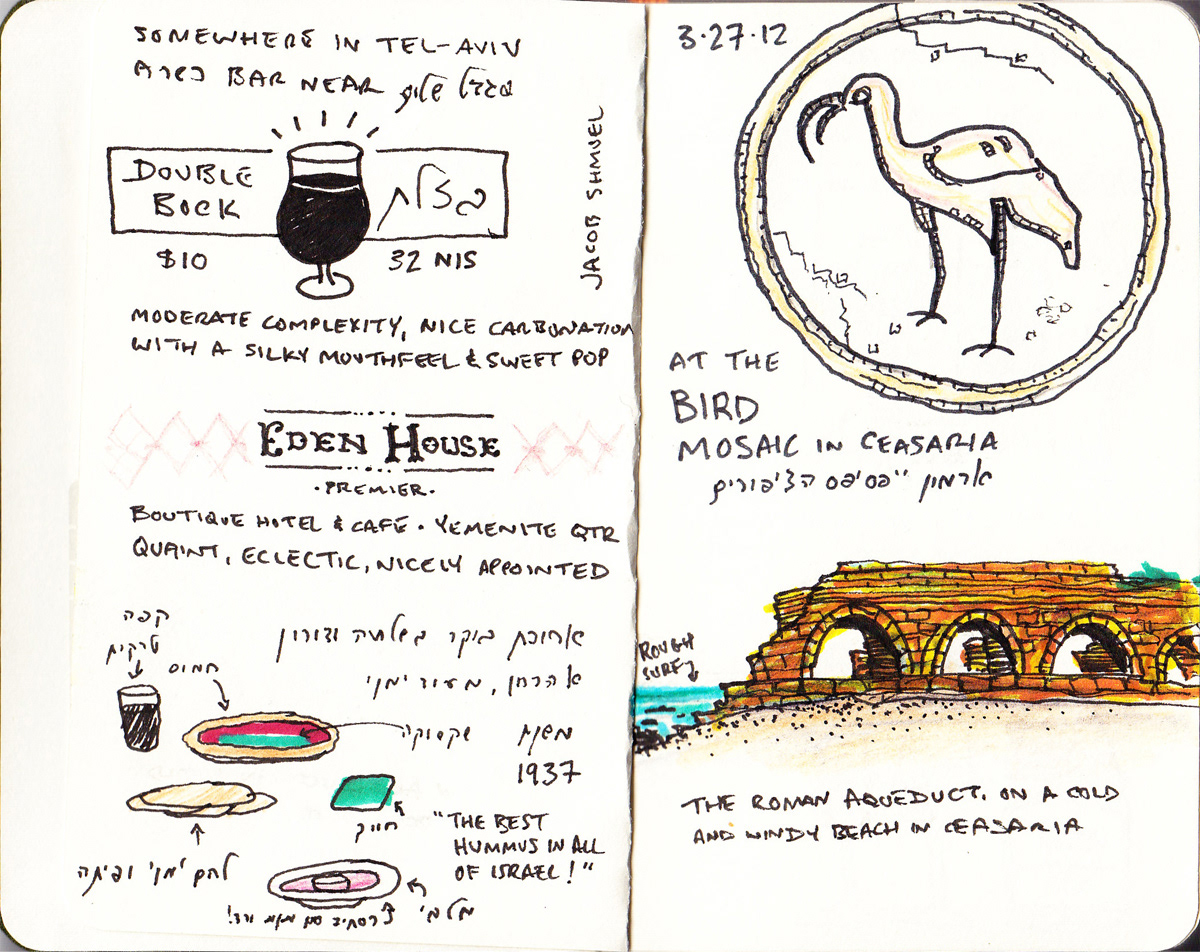 SOMEWHERE IN TEL-AVIV
BAR NEAR מגדל שלום
DOUBLE
BOCK
בזלת
$10
32 NIS
JACOB SHMUEL
MODERATE COMPLEXITY, NICE CARBONATION
WITH A SILKY MOUTHFEEL & SWEET POP
EDEN HOUSE
·PREMIER·
BOUTIQUE HOTEL & CAFÉ · YEMENITE QTR
QUAINT, ECLECTIC, NICELY APPOINTED
קפה
טורקית
חומוס
ארוחת בוקר
מ 
שקשוקה
1937
"THE BEST
HUMMUS IN ALL
OF ISRAEL!"
חריף
לחם ופיתה
מלבי
3·27·12
AT THE
BIRD
MOSAIC IN CEASARIA
ארמון "פסיפס הציפורים
ROUGH
SURF
THE ROMAN AQEDUCT. ON A COLD
AND WINDY BEACH IN CEASARIA